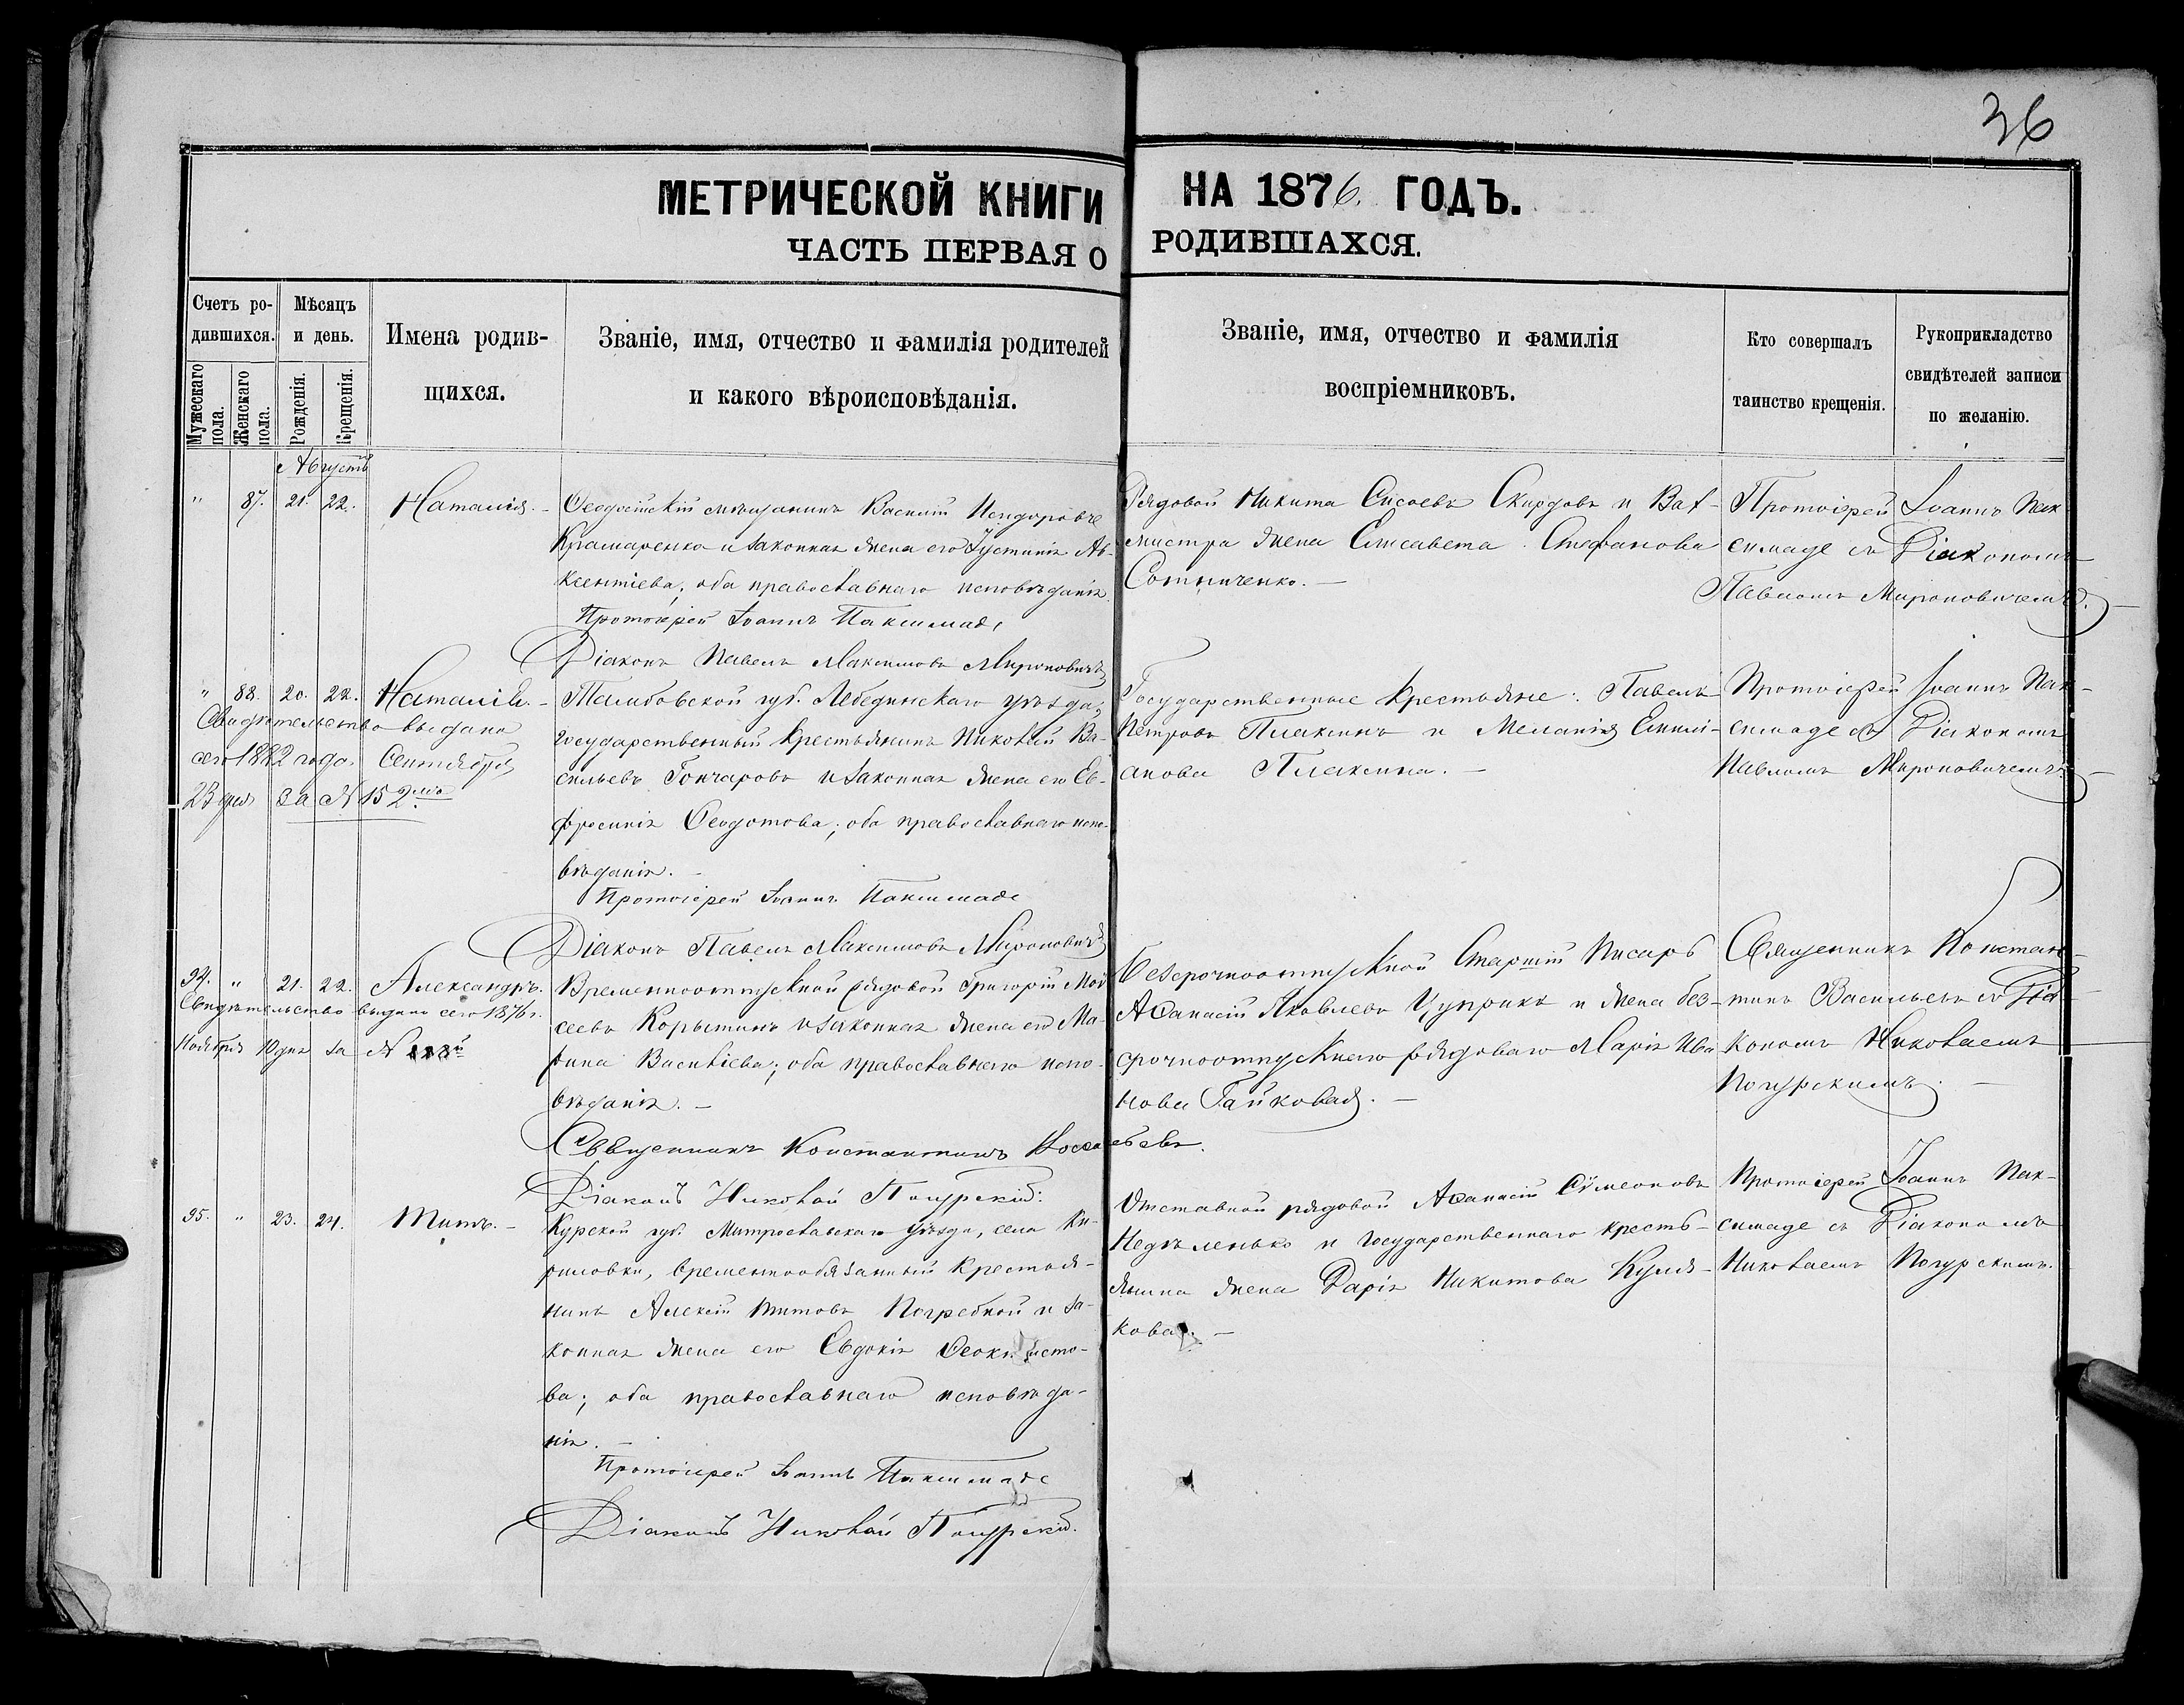 36
МЕТРИЧЕСКОЙ КНИГИ НА 1876. ГОДЪ.
ЧАСТЬ ПЕРВАЯ О РОДИВШАХСЯ.
Счетъ ро-
дившихся.
Мужескаго пола.
Женскаго пола.
Мѣсяцъ
и день.
Рожденія.
Крещенія.
Имена родив-
щихся.
Званіе, имя, отчество и фамилія родителей
и какого вѣроисповѣданія.
Званіе, имя, отчество и фамилія
воспріемниковъ.
Кто совершалъ
таинство крещенія.
Рукоприкладство
свидѣтелей записи
по желанію.
Августъ
" 87. 21. 22. Наталія. -
Ѳеодосійскій мѣщанинъ Василій
Крамаренко и законная жена его Іустинія Ав-
ксентіева; оба православнаго исповѣданія.
Протоіерей Іоаннъ Паксимаде
Діаконъ Павелъ Максимовъ Мироновичъ
Рядовой Никита Сысоевъ Скирдовъ и Вах-
мистра жена Елисавета Стефанова
Сотниченко. —
Протоіерей Іоаннъ Пак-
симаде съ Діакономъ
Павломъ Мироновичемъ. —
" 88. 20. 22. Наталія. -
Свидѣтельство выдано
сего 1882 года Сентября
23 дня за № 152мъ
Тамбовской губ. Лебединскаго уѣзда,
государственный крестьянинъ Николай Ва-
сильевъ Гончаровъ и законная жена его Ев-
фросинія Ѳеодотова; оба православнаго испо-
вѣданія. -
Протоіерей Іоаннъ Паксимаде
Діаконъ Павелъ Максимовъ Мироновичъ
Государственные крестьяне: Павелъ
Петровъ Плаксинъ и Меланія Емилі-
анова Плаксина. —
Протоіерей Іоаннъ Пак-
симаде съ Діакономъ
Павломъ Мироновичемъ —
94. " 21. 22. Александръ.
Свидѣтельство выдано сего 1876 г.
Ноября 10 дня за №
Временноотпускной рядовой Григорій Мой-
сеевъ Корытинъ и законная жена его Ма-
рина Василіева; оба православнаго испо-
вѣданія. —
Священникъ Константинъ Васильевъ.
Діаконъ Николай Погурскій.
Безсрочноотпускной Старшій Писарь
Аѳанасій Яковлевъ Цуприкъ и жена без-
срочноотпускнаго рядоваго Марія Ива
нова Гайковая. —
Священникъ Констан-
тинъ Васильевъ съ Діа-
кономъ Николаемъ
Погурскимъ. —
95. " 23. 24. Титъ. -
Курской губ. Митрославскаго уѣзда, села Ки-
риловки, временнообязанный крестья-
нинъ Алексій Титовъ Погребной и за-
конная жена его Евдокія Ѳеоктисто-
ва; оба православнаго исповѣда-
нія. —
Протоіерей Іоаннъ Паксимаде
Діаконъ Николай Погурскій.
Отставной рядовой Аѳанасій Сѵмеоновъ
Недѣленько и государственнаго кресть-
янина жена Дарія Никитова Куля-
кова. —
Протоіерей Іоаннъ Пак-
симаде съ Діакономъ
Николаемъ Погурскимъ.